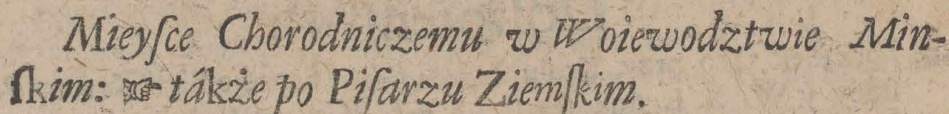 Mieyſce Chorodniczemu w Woiewodztwie Min-
ſkim: ☞ tákże po Piſarzu Ziemſkim.